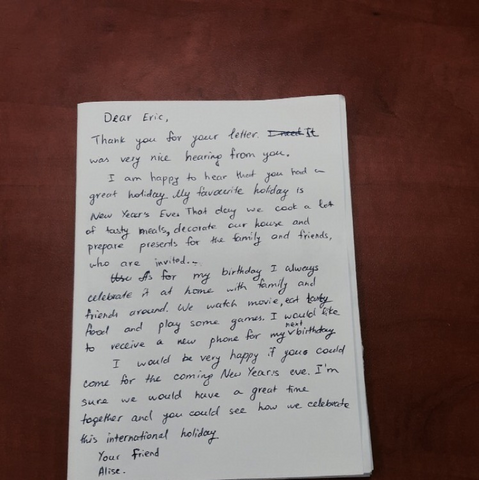 Dear Eric,
Thank you for your letter. It
was very nice hearing from you.
I am happy to hear that you had a
great holiday. My favourite holiday is
New Year's Eve. That day we cook a lot
of tasty meals, decorate our house and
prepare presents for the family and friends,
who are invited.
As for my birthday I always
celebrate it at home with family and
friends around. We watch movie, eat tasty
food and play some games. I would like
to receive a new phone for my next birthday
I would be very happy if you could
come for the coming New Year's eve. I'm
sure we would have a great time
together and you could see how we celebrate
this international holiday
Your friend
Alise.